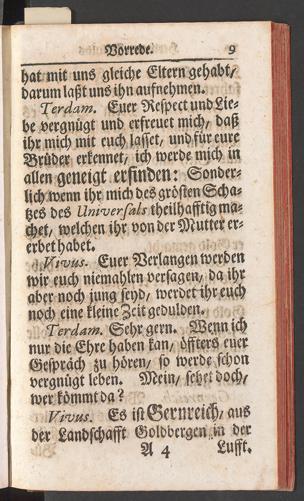 Vorrede. 9
hat mit uns gleiche Eltern gehabt/
darum laßt uns ihn aufnehmen.
Terdam. Euer Respect und Lie-
be vergnügt und erfreuet mich, daß
ihr mich mit euch lasset, und für eure
Brüder erkennet, ich werde mich in
allen geneigt erfinden: Sonder-
lich wenn ihr mich des grösten Scha-
tzes des Universals theilhafftig ma-
chet, welchen ihr von der Mutter er-
erbet habet.
Vivus. Euer Verlangen werden
wir euch niemahlen versagen, da ihr
aber noch jung seyd, werdet ihr euch
noch eine kleine Zeit gedulden.
Terdam. Sehr gern. Wenn ich
nur die Ehre haben kan, öffters euer
Gespräch zu hören, so werde schon
vergnügt leben. Mein/ sehet doch,
wer kömmt da?
Vivus. Es ist Gernreich, aus
der Landschafft Goldbergen in der
A 4 Lufft.